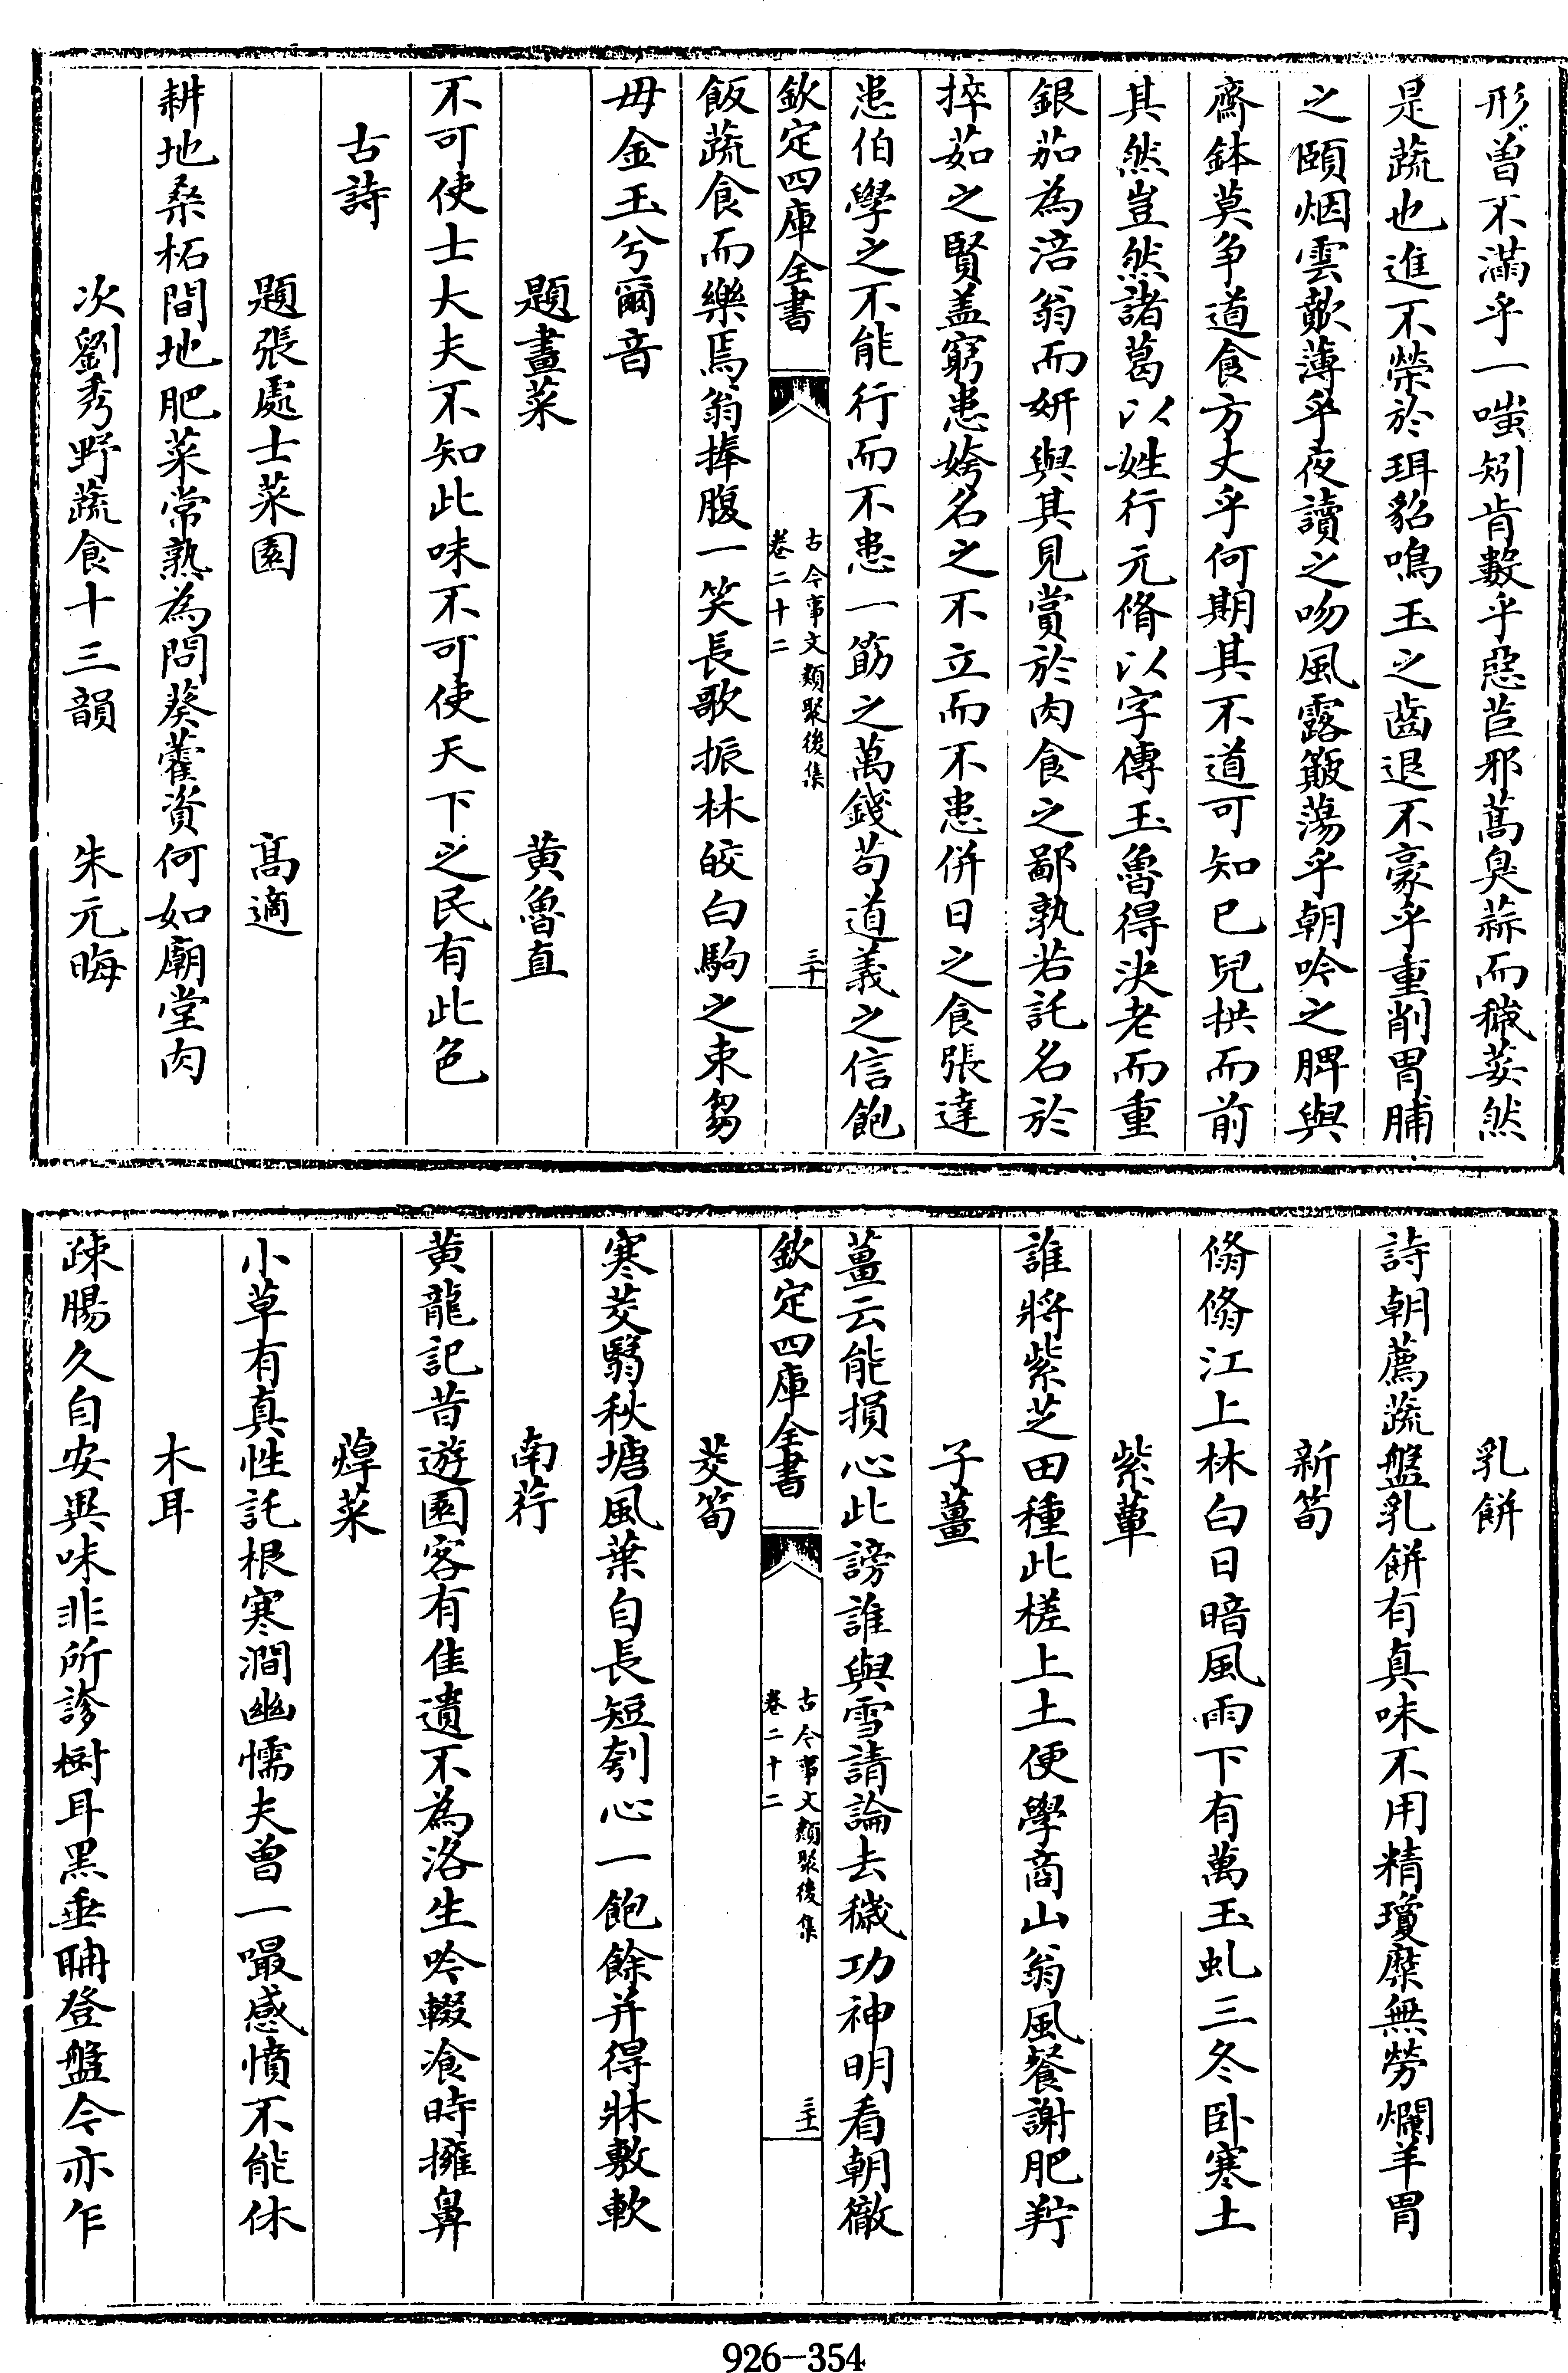 形曽不滿乎一嗤矧肯數乎惡苣邪蒿臭蒜而穢荽然
是蔬也進不榮於珥貂鳴玉之齒退不豪乎重削胃脯
之頤烟雲歕薄乎夜讀之吻風露簸蕩乎朝吟之脾與
齋鉢莫争道食方丈乎何期其不道可知已兒拱而前
其然豈然諸葛以姓行元脩以字傳玉魯得決老而重
銀茄為涪翁而妍與其見賞於肉食之鄙孰若託名於
捽茹之賢盖窮患姱名之不立而不患併日之食張達
患伯學之不能行而不患一筯之萬錢苟道義之信飽
欽定四庫全書
古今事文類聚後集
卷二十二
三十
飯蔬食而樂焉翁捧腹一笑長歌振林皎白駒之束芻
毋金玉兮爾音
題畫菜 黄魯直
不可使士大夫不知此味不可使天下之民有此色
古詩
題張處士菜園 髙適
耕地桑柘間地肥菜常熟為問葵藿資何如廟堂肉
次劉秀野蔬食十三韻 朱元晦
乳餅
詩朝薦蔬盤乳餅有真味不用精瓊糜無勞爛羊胃
新筍
脩脩江上林白日暗風雨下有萬玉虬三冬卧寒土
紫蕈
誰將紫芝田種此槎上土便學商山翁風餐謝肥羜
子薑
薑云能損心此謗誰與雪請論去穢功神明看朝徹
欽定四庫全書
古今事文類聚後集
卷二十二
三十一
茭筍
寒茭翳秋塘風葉自長短刳心一飽餘并得牀敷軟
南荇
黄龍記昔遊園客有佳遺不為洛生吟輟飡時擁鼻
焞菜
小草有真性託根寒澗幽懦夫曽一嘬感憤不能休
木耳
疎腸久自安異味非所診樹耳黑垂聃登盤今亦乍
926-354